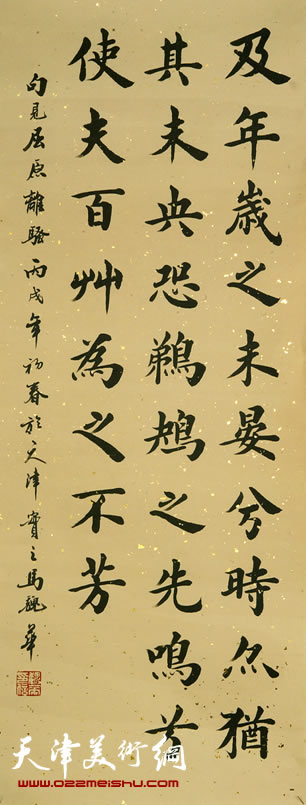 及年歲之未晏兮時亦猶
其未央恐鵜鴂之先鳴兮
使夫百艸為之不芳
句見屈原離騷丙戌年初春於天津實之馬魏華
天津美術網
www.022meishu.com